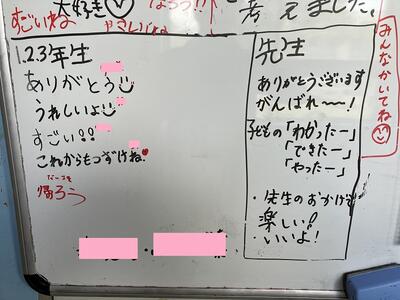 大好き
すごいね
なろう!!
考えました。
みんなかいてね
1.2.3年生
ありがとう
うれしいよ
すごい!!
これからもつづけね。
帰ろう
先生
ありがとうございます
がんばれ〜〜!
子どもの「わかったー」
「できたー」
「やったー」
・先生のおかげで
楽しい!!
いいよ!